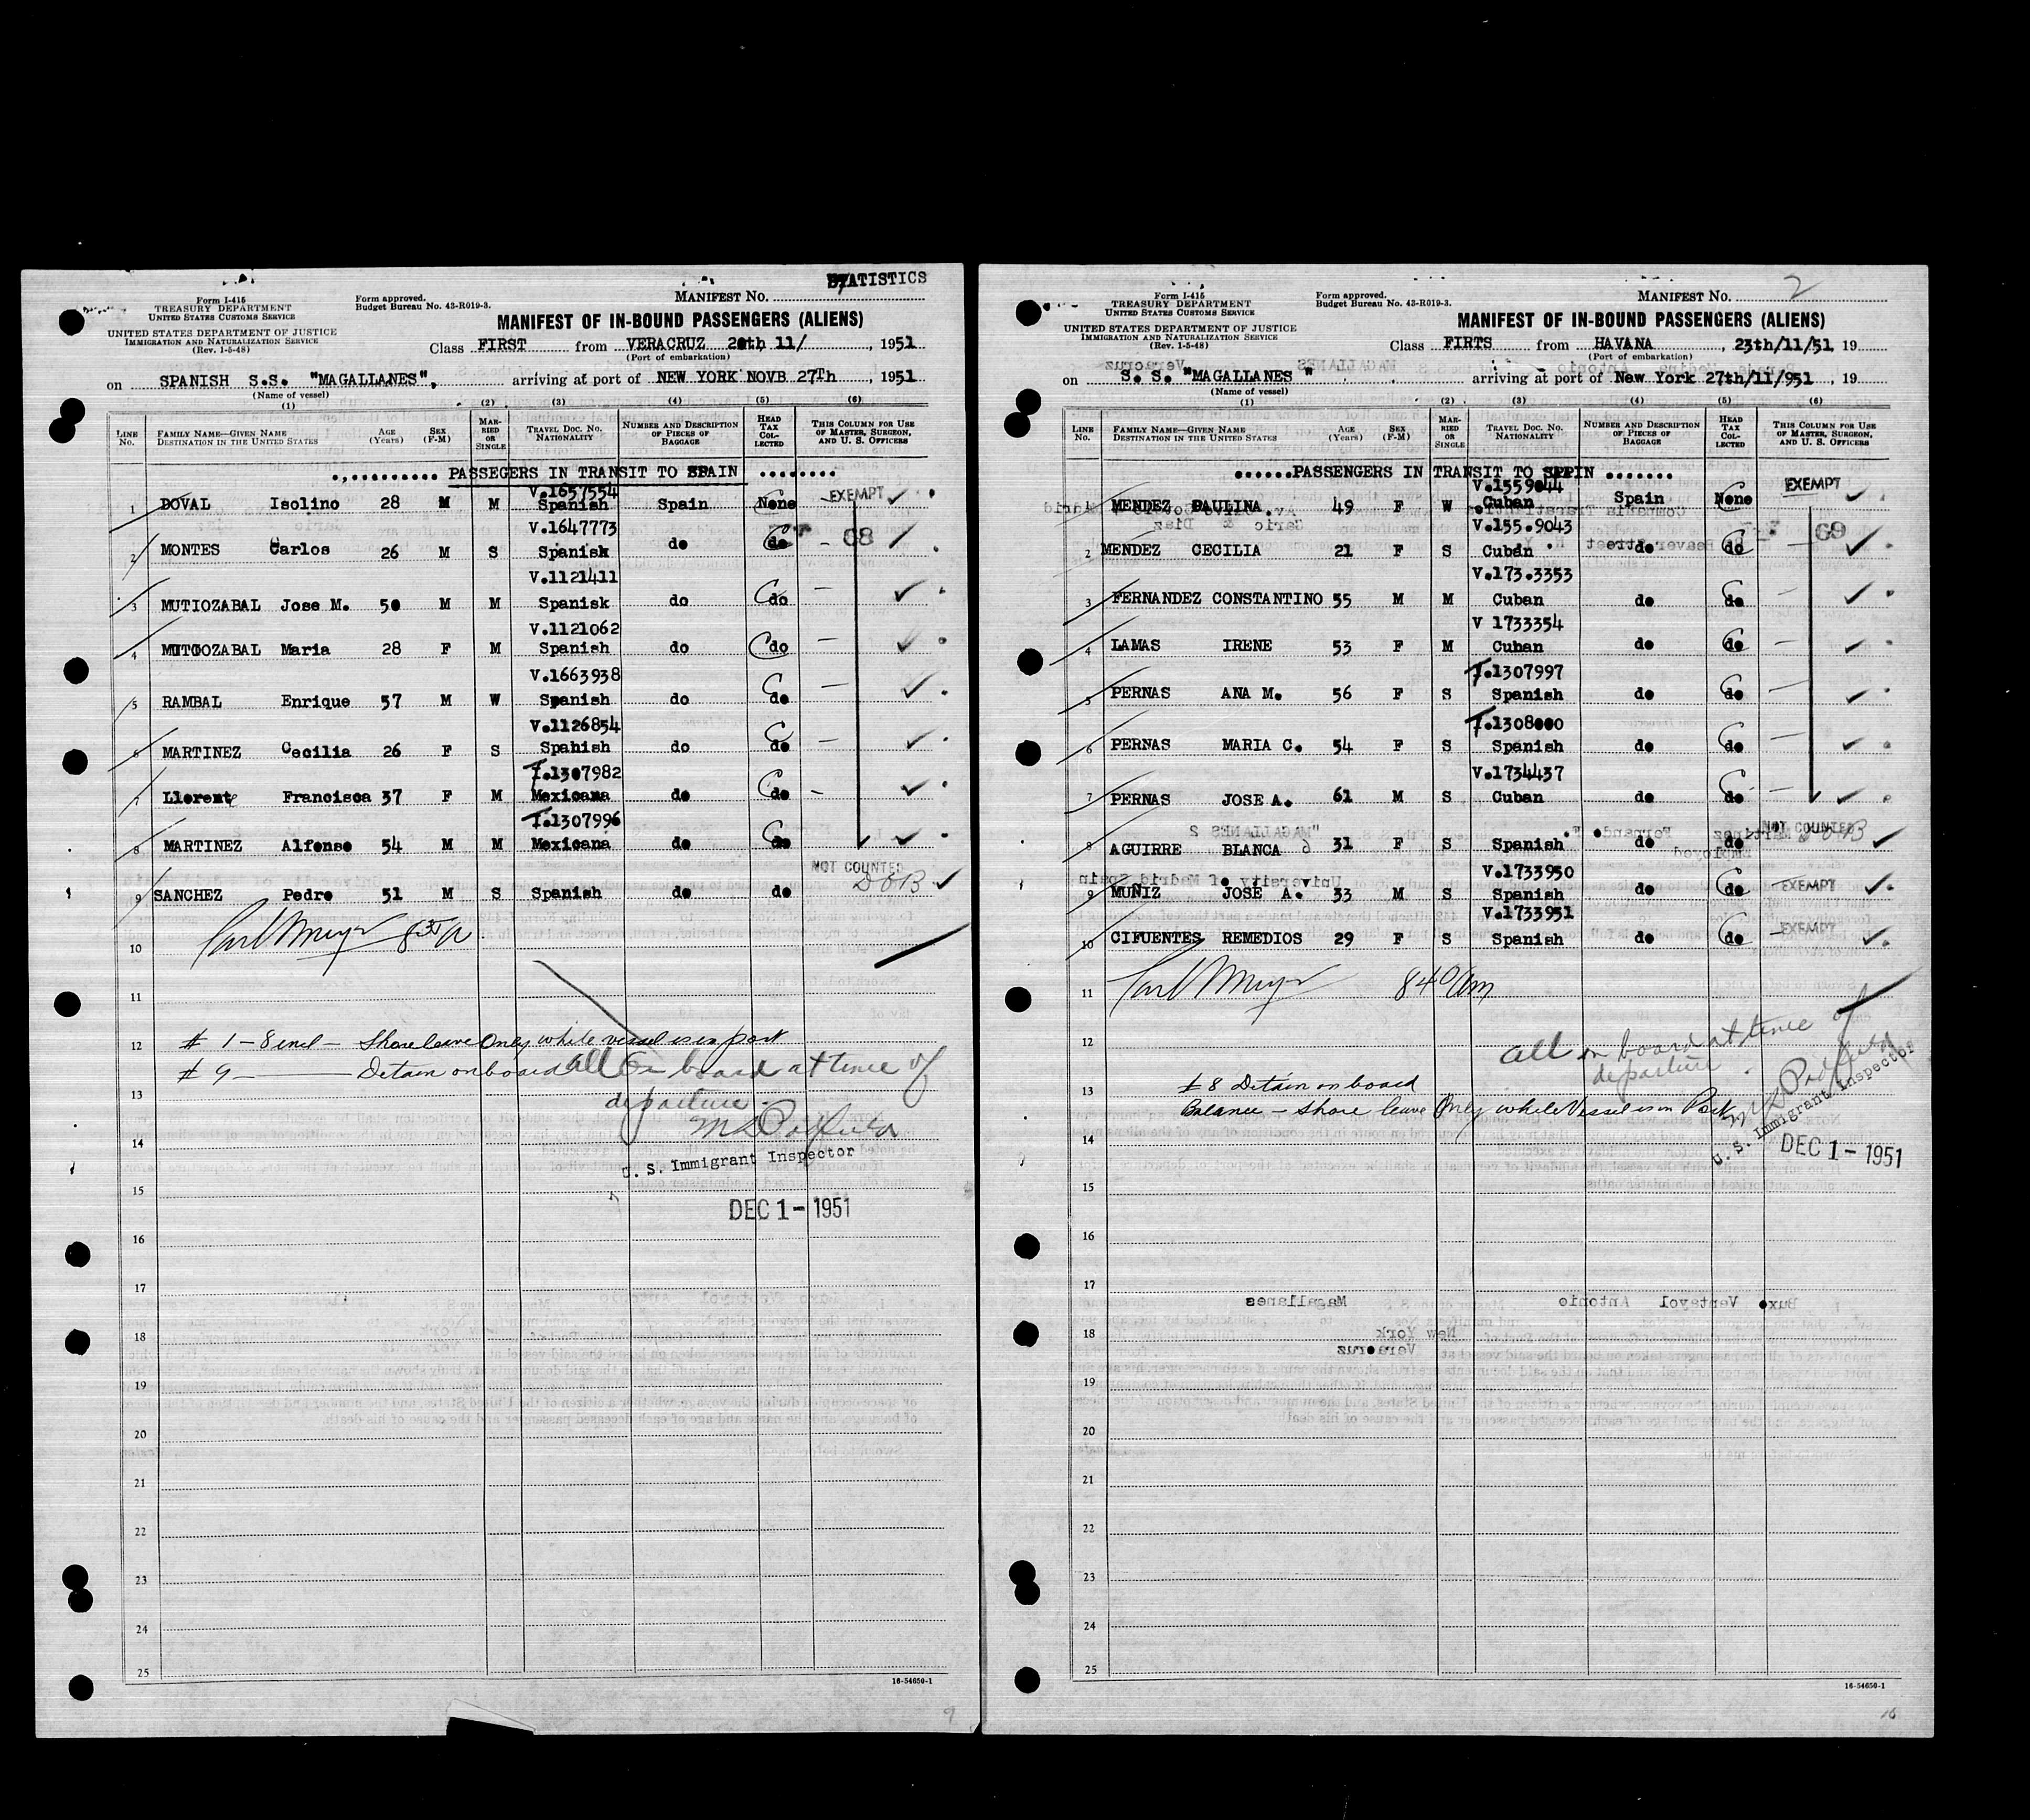 STATISTICS
Form I-415
TREASURY DEPARTMENT
UNITED STATES CUSTOMS SERVICE
UNITED STATES DEPARTMENT OF JUSTICE
IMMIGRATION AND NATURALIZATION SERVICE
(Rev. 1-5-48)
Form approved.
Budget Bureau No. 43-R019-3.
MANIFEST No.
MANIFEST OF IN-BOUND PASSENGERS (ALIENS)
Class FIRST from VERACRUZ 20th 11/ , 1951
(Port of embarkation)
on SPANISH S.S. "MAGALLANES", arriving at port of NEW YORK NOVB 27Th , 1951
(Name of vessel)
(1) (2) (3) (4) (5) (6)
LINE No. FAMILY NAME—GIVEN NAME DESTINATION IN THE UNITED STATES AGE (Years) SEX (F-M) MARRIED OR SINGLE TRAVEL DOC. NO. NATIONALITY NUMBER AND DESCRIPTION OF PIECES OF BAGGAGE HEAD TAX COLLECTED THIS COLUMN FOR USE OF MASTER, SURGEON, AND U. S. OFFICERS
PASSEGERS IN TRANSIT TO SPAIN
V.1657554
1 DOVAL Isolino 28 M M Spanish Spain None EXEMPT
V.1647773
2 MONTES Carlos 26 M S Spanisk do do 68
V.1121411
3 MUTIOZABAL Jose M. 50 M M Spanisk do do
V.1121062
4 MUTIOZABAL Maria 28 F M Spanish do do
V.1663938
5 RAMBAL Enrique 57 M W Spanish do do
V.1126854
6 MARTINEZ Cecilia 26 F S Spahish do do
I.1307982
7 Llorent Francisca 37 F M Mexicana do do
I.1307996
8 MARTINEZ Alfonso 54 M M Mexicana do do
NOT COUNTED
9 SANCHEZ Pedro 51 M S Spanish do do DOB
10 Carl Meyer 8 35 A
11
12 # 1-8 incl - Shore leave Only while vessel is in port
# 9 Detain on board all on board at time of
13 departure.
14
U. S. Immigrant Inspector
15
DEC 1 - 1951
16
17
18
19
20
21
22
23
24
25
16-54650-1
9
Form I-415
TREASURY DEPARTMENT
UNITED STATES CUSTOMS SERVICE
UNITED STATES DEPARTMENT OF JUSTICE
IMMIGRATION AND NATURALIZATION SERVICE
(Rev. 1-5-48)
Form approved.
Budget Bureau No. 43-R019-3.
MANIFEST No. 2
MANIFEST OF IN-BOUND PASSENGERS (ALIENS)
Class FIRTS from HAVANA , 23th/11/51, 19
(Port of embarkation)
on S. S. "MAGALLANES " arriving at port of New York 27th/11/951 , 19
(Name of vessel)
(1) (2) (3) (4) (5) (6)
LINE No. FAMILY NAME—GIVEN NAME DESTINATION IN THE UNITED STATES AGE (Years) SEX (F-M) MARRIED OR SINGLE TRAVEL DOC. NO. NATIONALITY NUMBER AND DESCRIPTION OF PIECES OF BAGGAGE HEAD TAX COLLECTED THIS COLUMN FOR USE OF MASTER, SURGEON, AND U. S. OFFICERS
......PASSENGERS IN TRANSIT TO SPPIN .......
V.1559044
1 MENDEZ PAULINA 49 F W Cuban Spain None EXEMPT
V.155.9043
2 MENDEZ CECILIA 21 F S Cuban do do 69
V.173.3353
3 FERNANDEZ CONSTANTINO 55 M M Cuban do do
V 1733354
4 LAMAS IRENE 53 F M Cuban do do
I.1307997
5 PERNAS ANA M. 56 F S Spanish do do
I.1308000
6 PERNAS MARIA C. 54 F S Spanish do do
V.1734437
7 PERNAS JOSE A. 61 M S Cuban do do
NOT COUNTED
8 AGUIRRE BLANCA 31 F S Spanish do do DOB
V.1733950
9 MUÑIZ JOSE A. 33 M S Spanish do do EXEMPT
V.1733951
10 CIFUENTES REMEDIOS 29 F S Spanish do do EXEMPT
11 Carl Meyer 8 40 Am
12 all on board at time of
departure.
13 # 8 Detain on board
Balance - Shore leave Only while Vessel is in Port
14 U. S. Immigrant Inspector
DEC 1 - 1951
15
16
17
18
19
20
21
22
23
24
25
16-54650-1
10